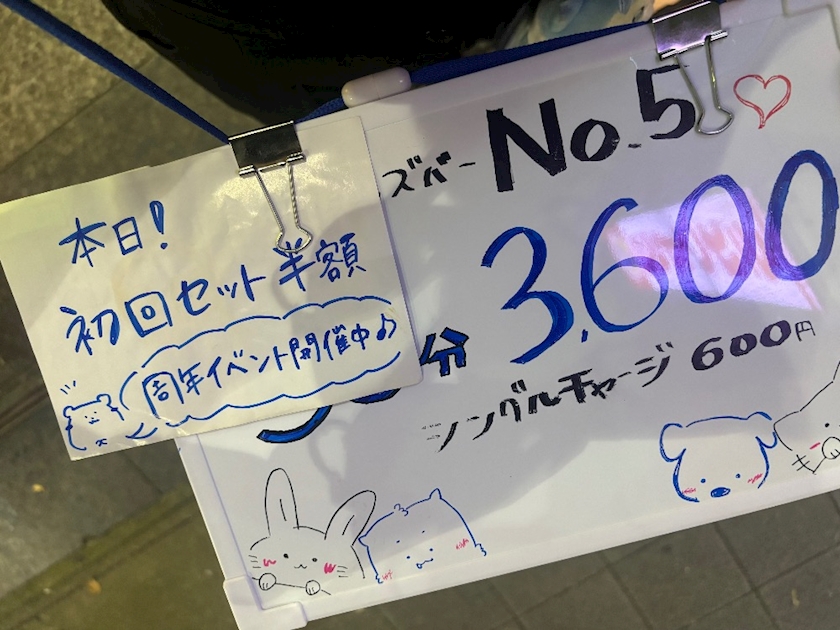 本日!
初回セット半額
周年イベント開催中♪
ズバー No.5♡
3,600
分
シングルチャージ 600円